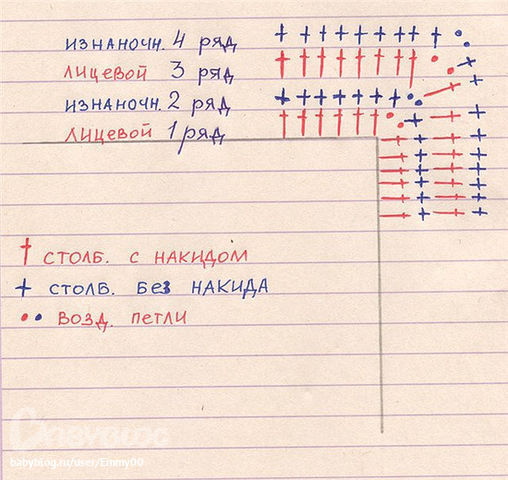 изнаночн. 4 ряд
лицевой 3 ряд
изнаночн. 2 ряд
лицевой 1 ряд
столб. с накидом
столб. без накида
возд. петли
BABYBLOG
babyblog.ru/user/Emmy00